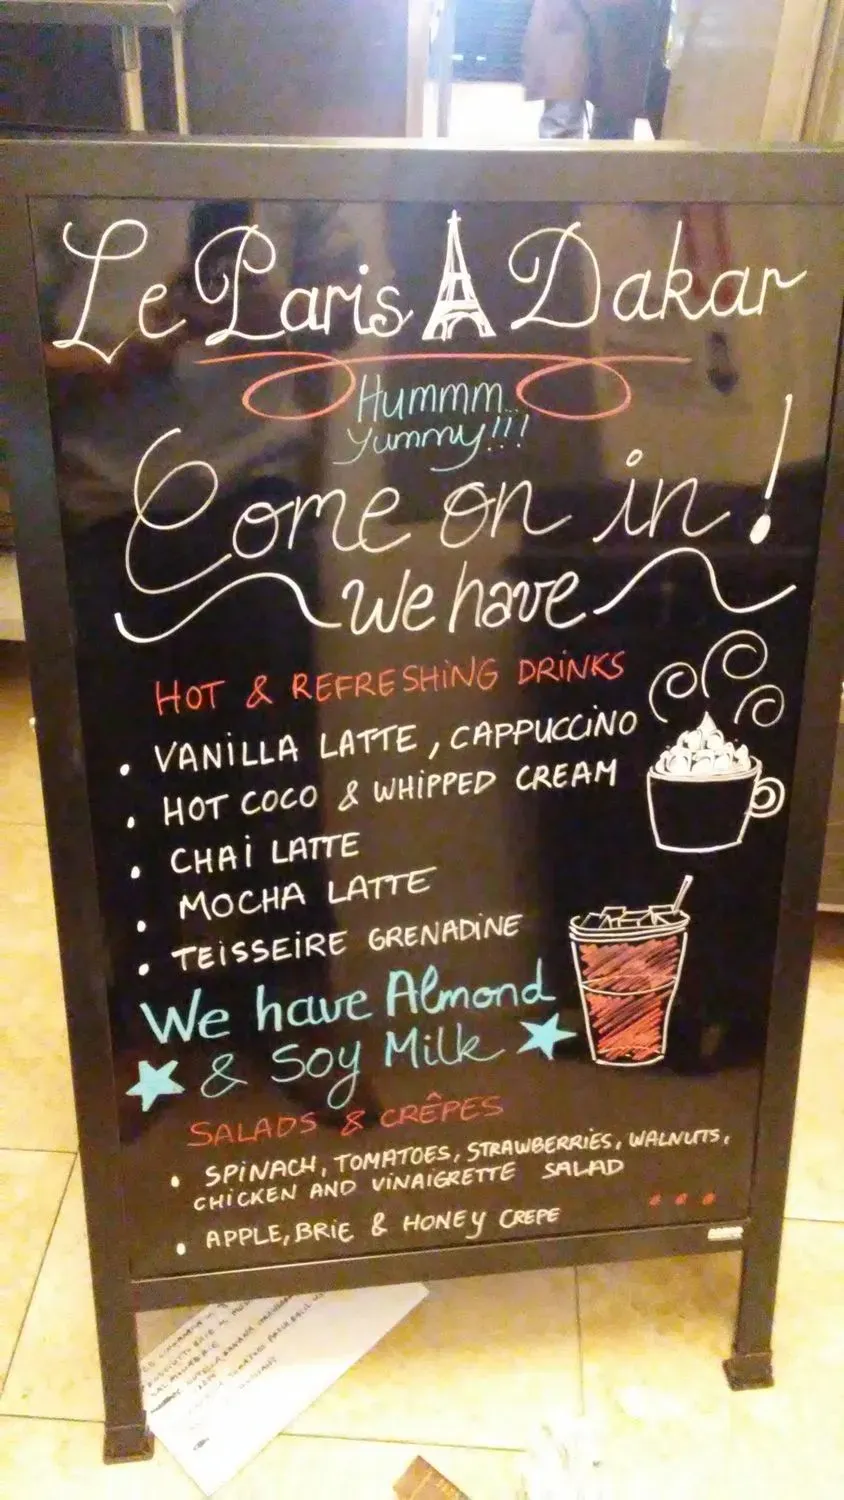 Le Paris Dakar
Hummm...
Yummy!!!
Come on in!
We have
HOT & REFRESHING DRINKS
• VANILLA LATTE, CAPPUCCINO
• HOT COCO & WHIPPED CREAM
• CHAI LATTE
• MOCHA LATTE
• TEISSEIRE GRENADINE
We have Almond
& Soy Milk
SALADS & CRÊPES
• SPINACH, TOMATOES, STRAWBERRIES, WALNUTS,
CHICKEN AND VINAIGRETTE SALAD
• APPLE, BRIE & HONEY CREPE